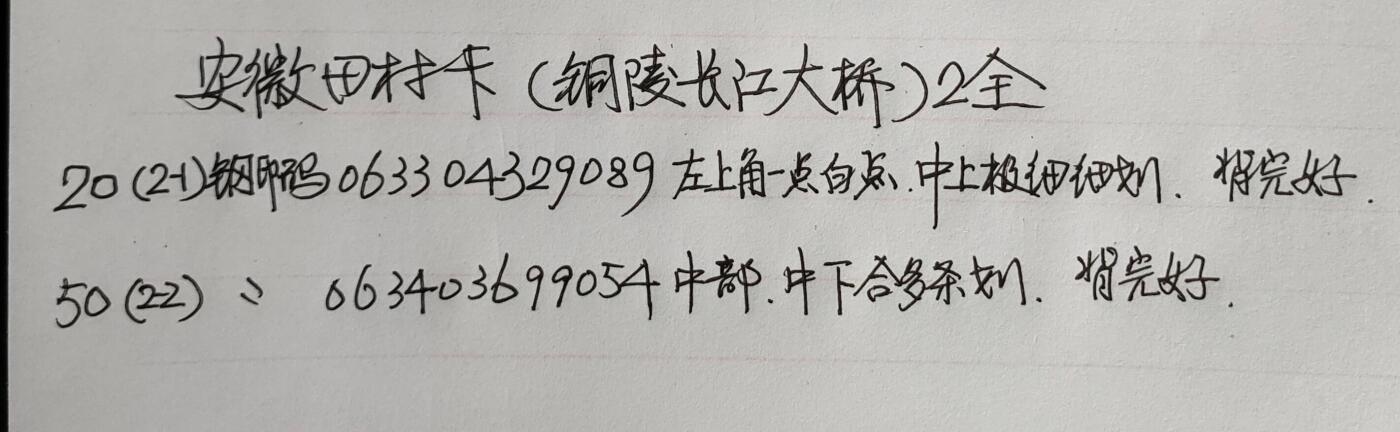 安徽田村卡（铜陵长江大桥）2全
20(2-1)钢印码063304329089左上角一点白点.中上极细细划.背完好.
50(2-2) 〃 063403699054中部.中下合多条划.背完好.